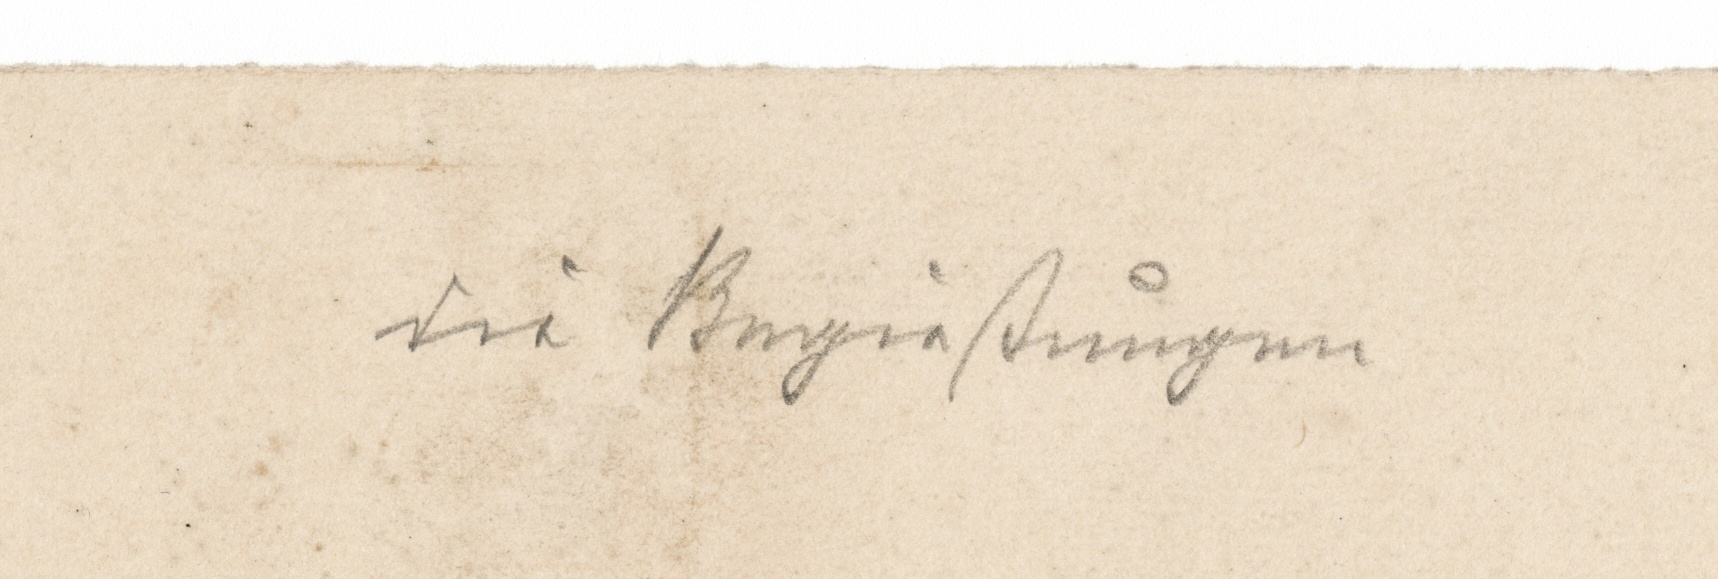 die Begießungen